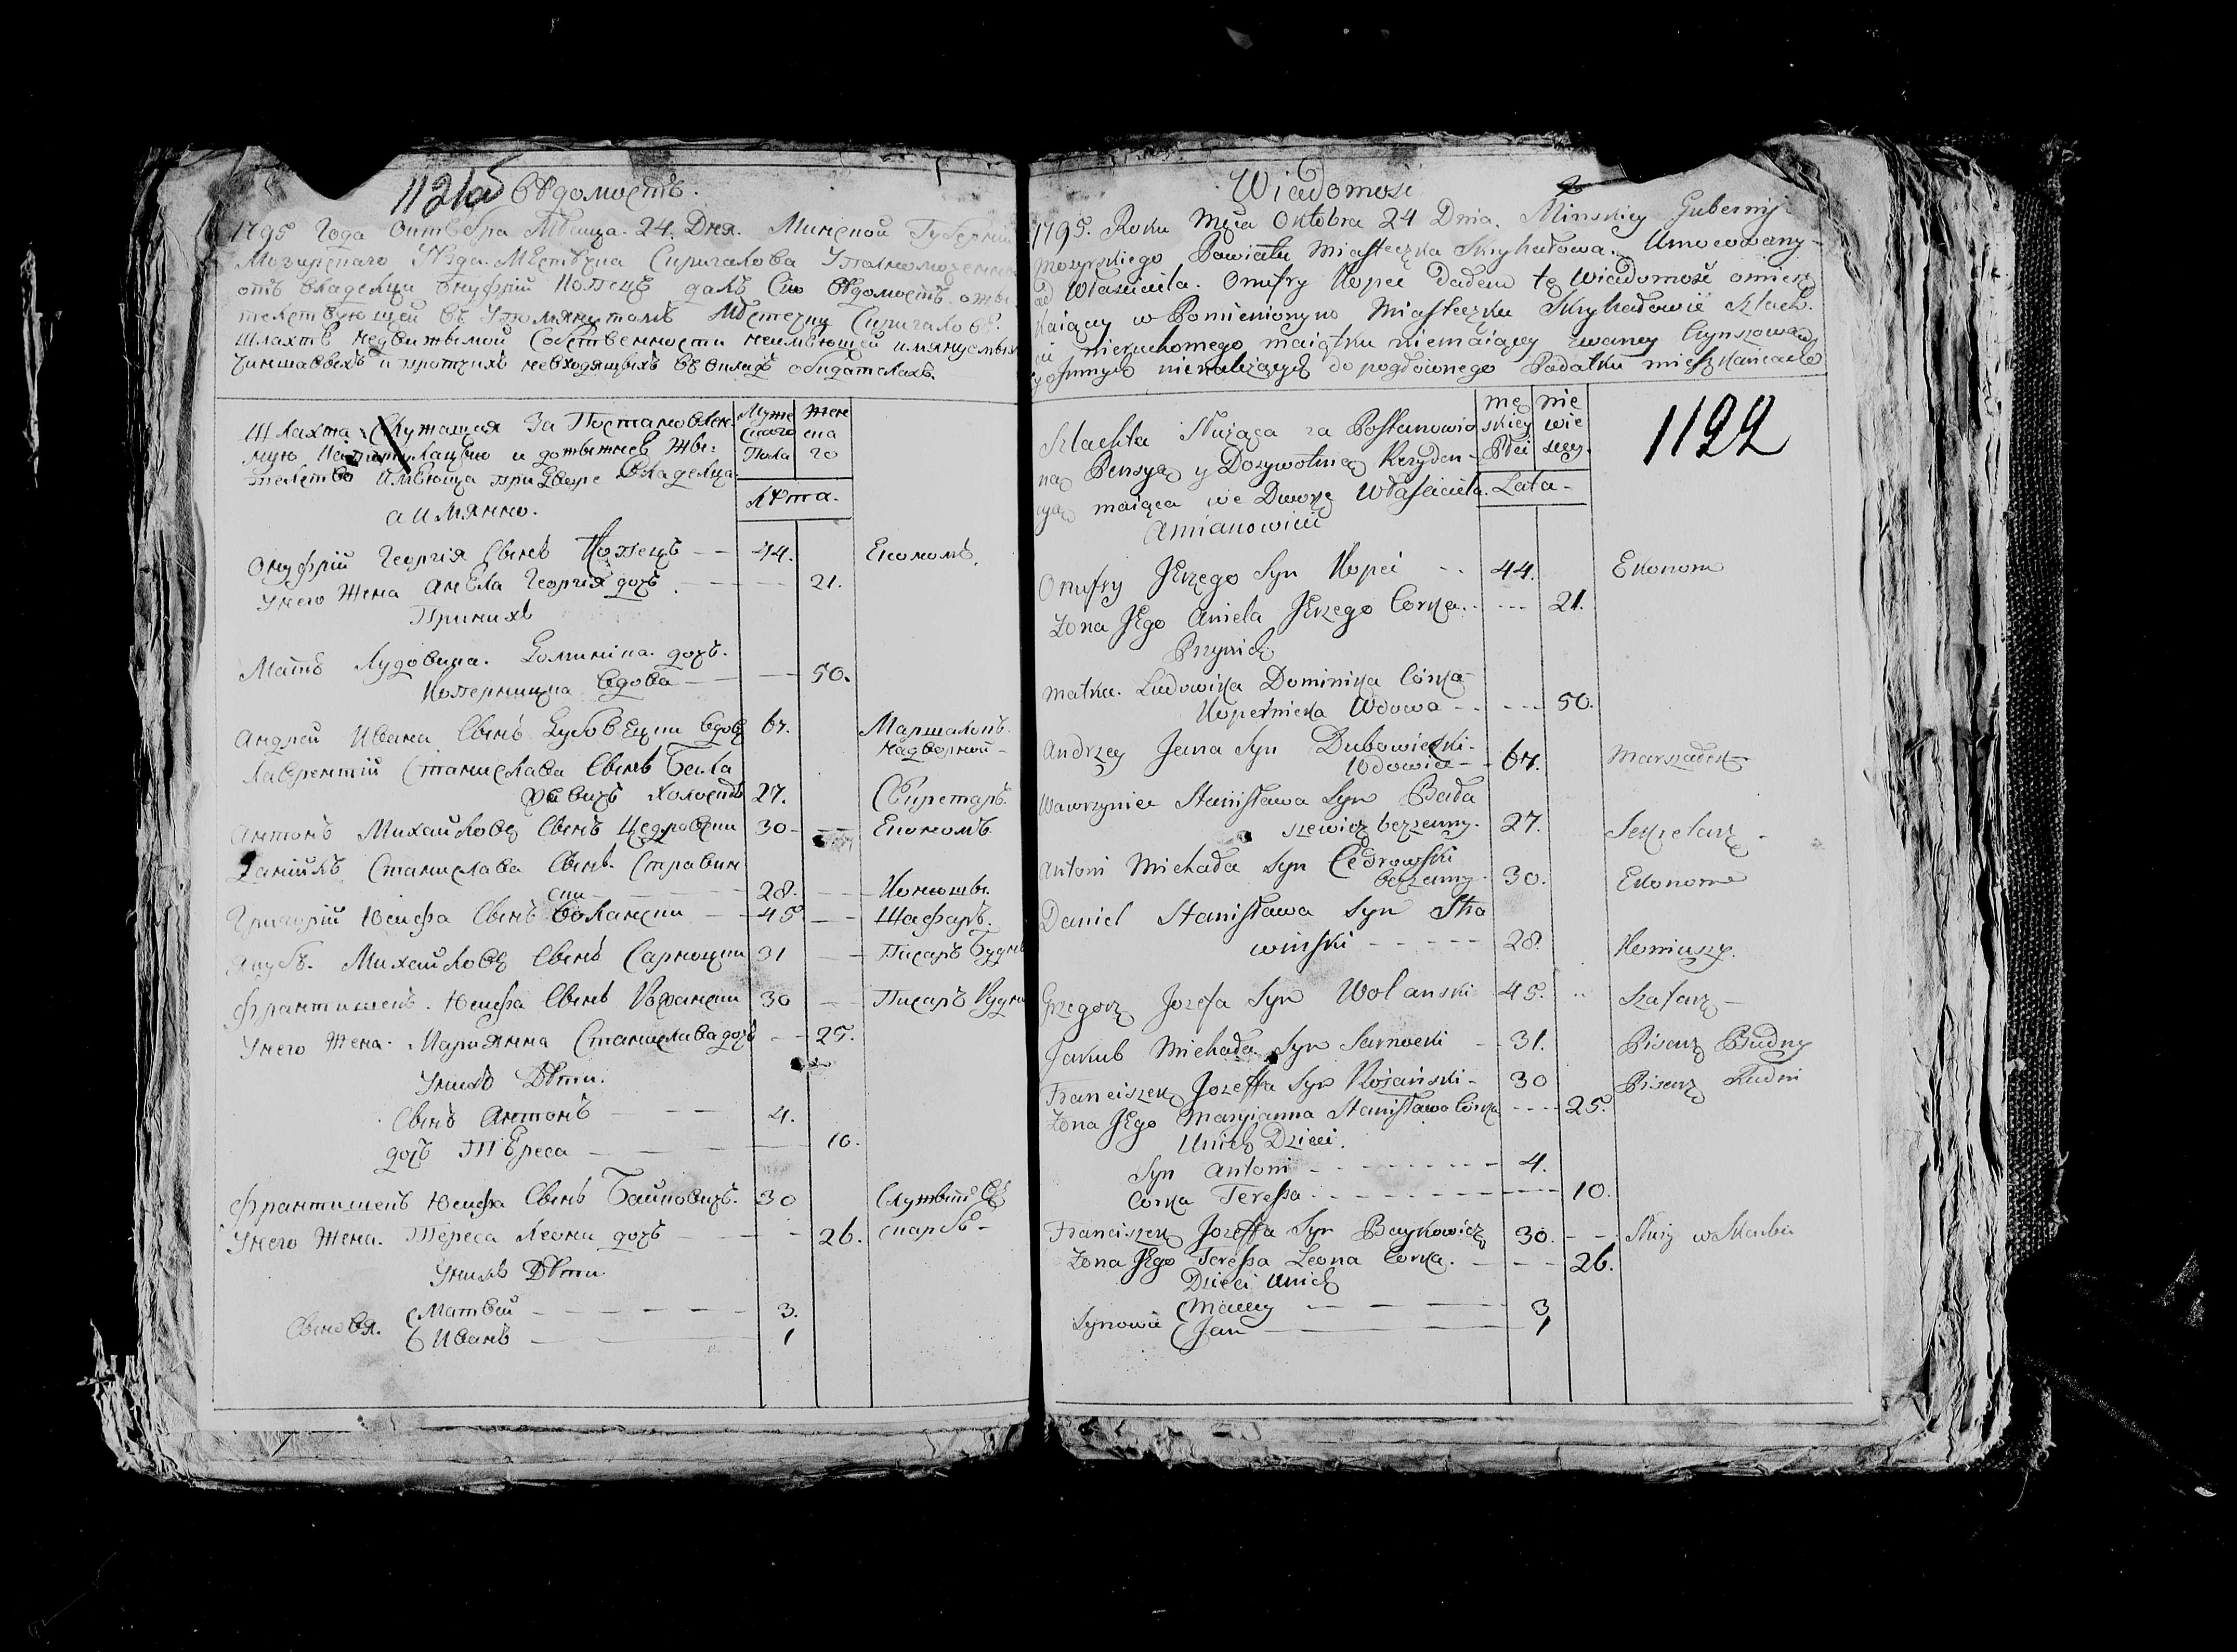 1121об
Вѣдомость.
1795 Года Октебра Мѣсяца. 24. Дня. Минской Губерніи
Мозирскаго Уѣзда. Мѣстечка Скригалова
отъ Владелца Онуфрій Копецъ далъ Сию Вѣдомость. о
телствующей въ Упомянутомъ Мѣстечку Скригалове.
Шляхтѣ недвижимой Собственности неимѣющей
Чиншавыхъ и протчихъ невходящихъ въ Окладъ
Шляхта Служащая За Постановлен
ную и дожытнее Жы:
телство Имѣюща при Дворе Владелца
а имянно.
Муже
скаго
Пола
Жен
ска
го
Лѣта.
Онуфрій Георгія Сынъ Копецъ — — 44. Економъ.
Унего Жена Анеля Георгія дочь — — 21.
Принихъ
Мать Лудовика. Доминика. дочь.
Коперницка Вдова — — 50.
Андрей Ивана Сынъ Дубовецки Вдовецъ 67. Маршалокъ.
надворной —
Лаврентій Станислава Сынъ Бага
Холостъ 27. Секретаръ.
Антонъ Михайлова Сынъ Цедровски 30 — — Економъ.
Даніилъ Станислава Сынъ. Стравин
ски — 28. — — Конюшы.
Григорій Юсифа Сынъ Волански — 45 — — Шафаръ.
Якубъ. Михайлова Сынъ Сарноцки 31 — Писаръ Будны
Франтишекъ. Юсифа Сынъ Рожански 30 — Писаръ Рудни
Унего Жена. Мариянна Станислава дочь — — 25.
Унихъ Дѣти.
Сынъ Антонъ — — — 4.
дочь Тереса — — — 10.
Франтишекъ Юсифа Сынъ Байковичъ. 30 Служытъ въ
Унего Жена. Тереса Леона дочь — — 26. скарбѣ —
Унихъ Дѣти
Сыновя. Матвѣй — — — 3.
Иванъ — — 1
Wiadomosć
1795. Roku Mca Oktobra 24 Dnia. Minskiey Gubernij
Mozyrskiego Powiatu Miasteczka Skryhałowa. Umocowany
od Własciciela. Onufry Kopeć Dadem tę Wiadomość omiesz
kaiącey w Pomienionym Miasteczku Skryhałowie Szlach.
cie nieruchomego maiątku niemaiącey zwaney Czynszową
y innych nienależących do pogłownego Podatku mieszkańcach
Szlachta Służąca za Postanowio
ną Pensyą y Dożywotnią Rezyden-
cyą maiąca we Dworze Własciciela.
Amianowicie
mę
skiey
Płci
nie
wie
sciey.
Lata-
1122
Onufry Jerzego Syn Kopeć - - 44. Ekonom
Zona Jego Aniela Jerzego Corka. - - - 21.
Przynich
Matka. Ludowika Dominika Córka
Kopernicka Wdowa - - - - 50.
Andrzey Jana Syn Dubowiecki-
Wdowiec - - 67. Marszałek
Wawrzyniec Stanisława Syn Bada
szewicz bezzenny. 27. Sekretarz -
Antoni Michała Syn Cedrowski
bezzenny - 30. Ekonom
Daniel Stanisława Syn Stra
winski - - - - - 28. Koniuszy.
Grzegorz Jozefa Syn Wolanski - 45. Szafarz -
Jakub Michała Syn Sarnocki - 31. Pisarz Budny
Franciszek Jozeffa Syn Rożański - 30 Pisarz Rudni
Zona Jego Maryianna Stanisława Corka - - - - 25.
Unich Dzieci.
Syn Antoni - - - - - - - 4.
Corka Teressa - - - - - - - - - - 10.
Franciszek Jozeffa Syn Baykowicz 30. - - Służy w Skarbie
Zona Jego Teressa Leona Corka. - - - - 26.
Dzieci Unich
Synowie Macey — — — 3
Jan — — 1